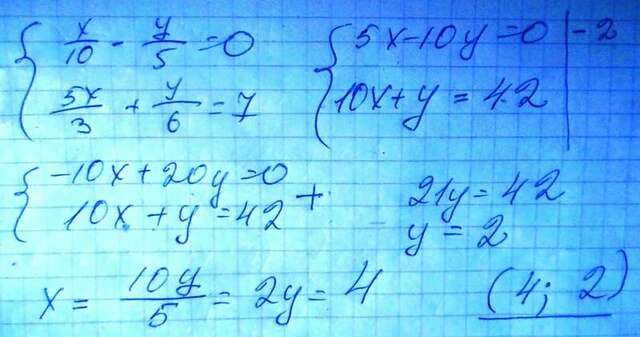 x/10 - y/5 = 0
5x/3 + y/6 = 7
5x-10y=0 |-2
10x+y=42
-10x+20y=0
10x+y=42 +
21y=42
y=2
x = 10y/5 = 2y = 4
(4; 2)